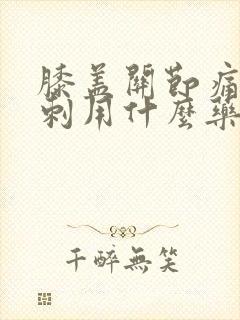 膝盖關節痛
刺用什麼藥
千醉無笑